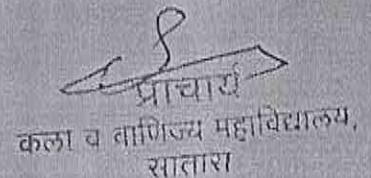 प्राचार्य
कला व वाणिज्य महाविद्यालय,
सातारा